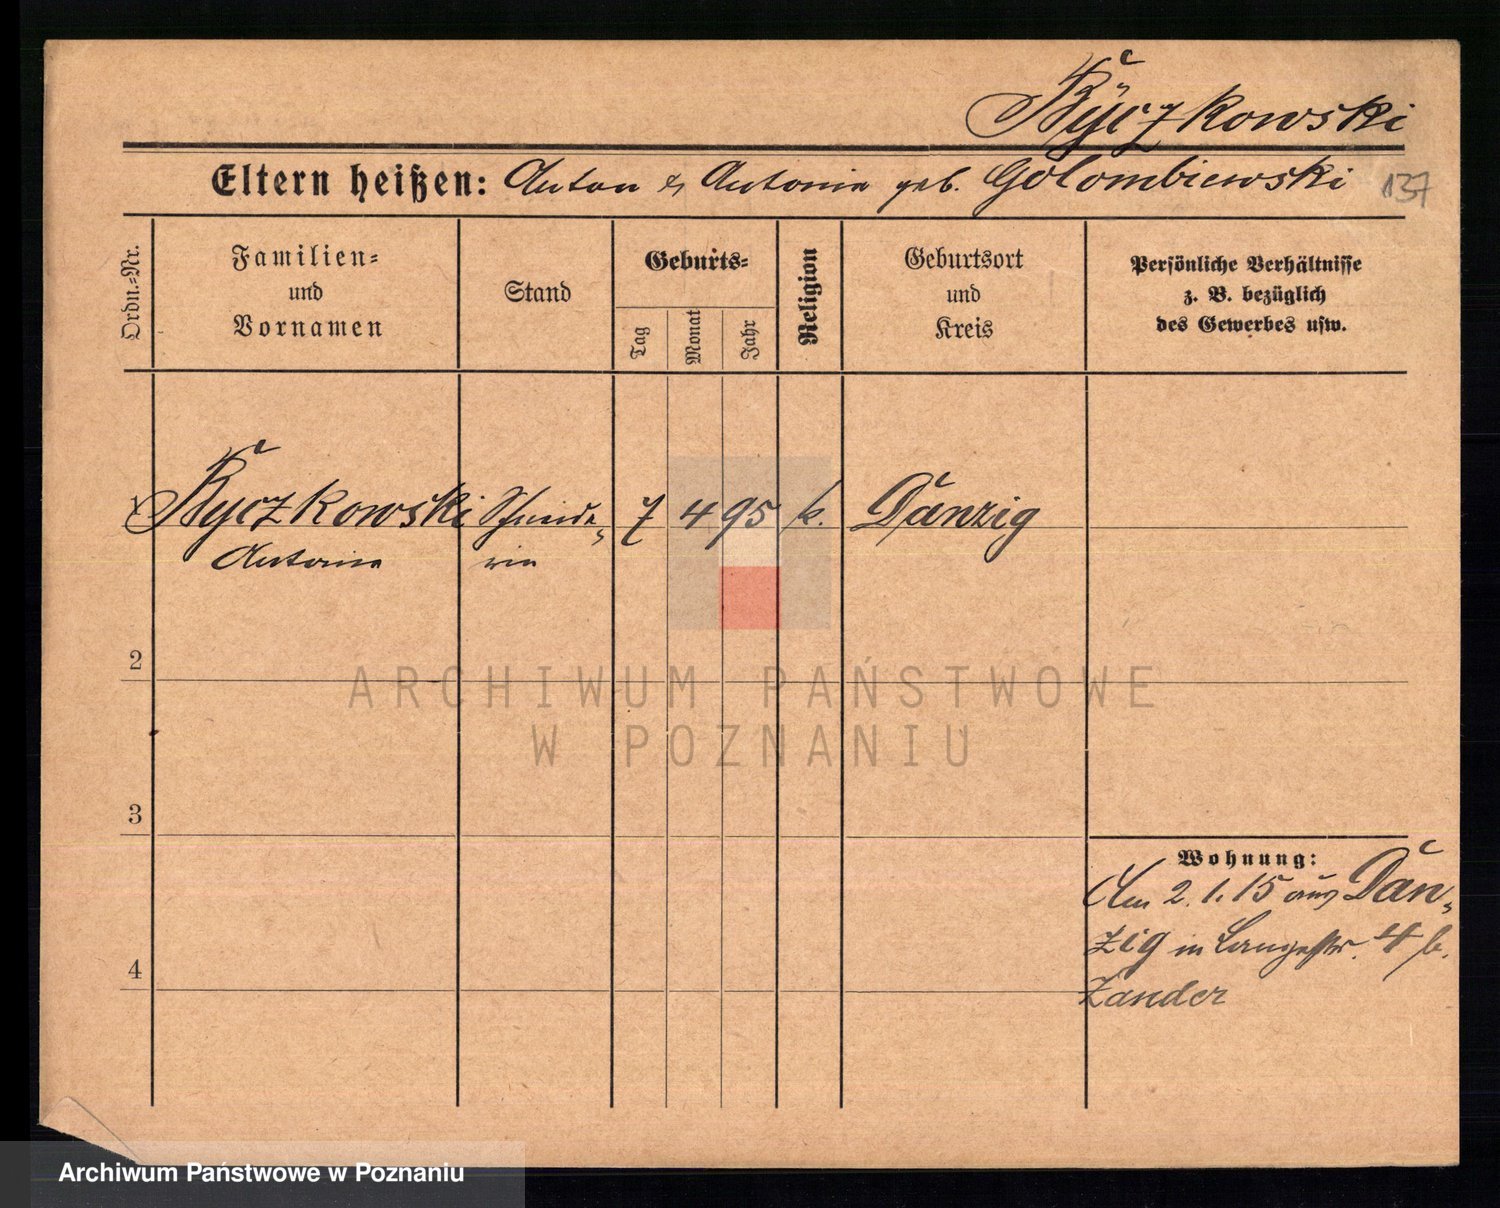 Byczkowski
Eltern heißen: Anton & Antonie geb. Golombiewski 137
Ordn.-Nr.
Familien-
und
Vornamen
Stand
Geburts-
Tag
Monat
Jahr
Religion
Geburtsort
und
Kreis
Persönliche Verhältnisse
z. B. bezüglich
des Gewerbes usw.
1 Byczkowski Schneide- 7 4 95 k. Danzig
Antonie rin
2
3
4
Wohnung:
Am 2.1.15 aus Dan-
zig in Langestr. 4 b.
Zander
ARCHIWUM PAŃSTWOWE
W POZNANIU
Archiwum Państwowe w Poznaniu